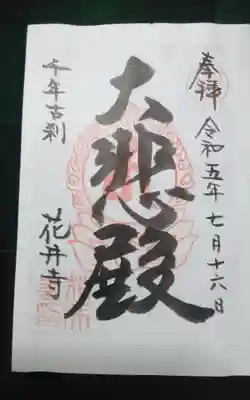 奉拝 令和五年七月十六日
大悲殿
千年古刹 花井寺